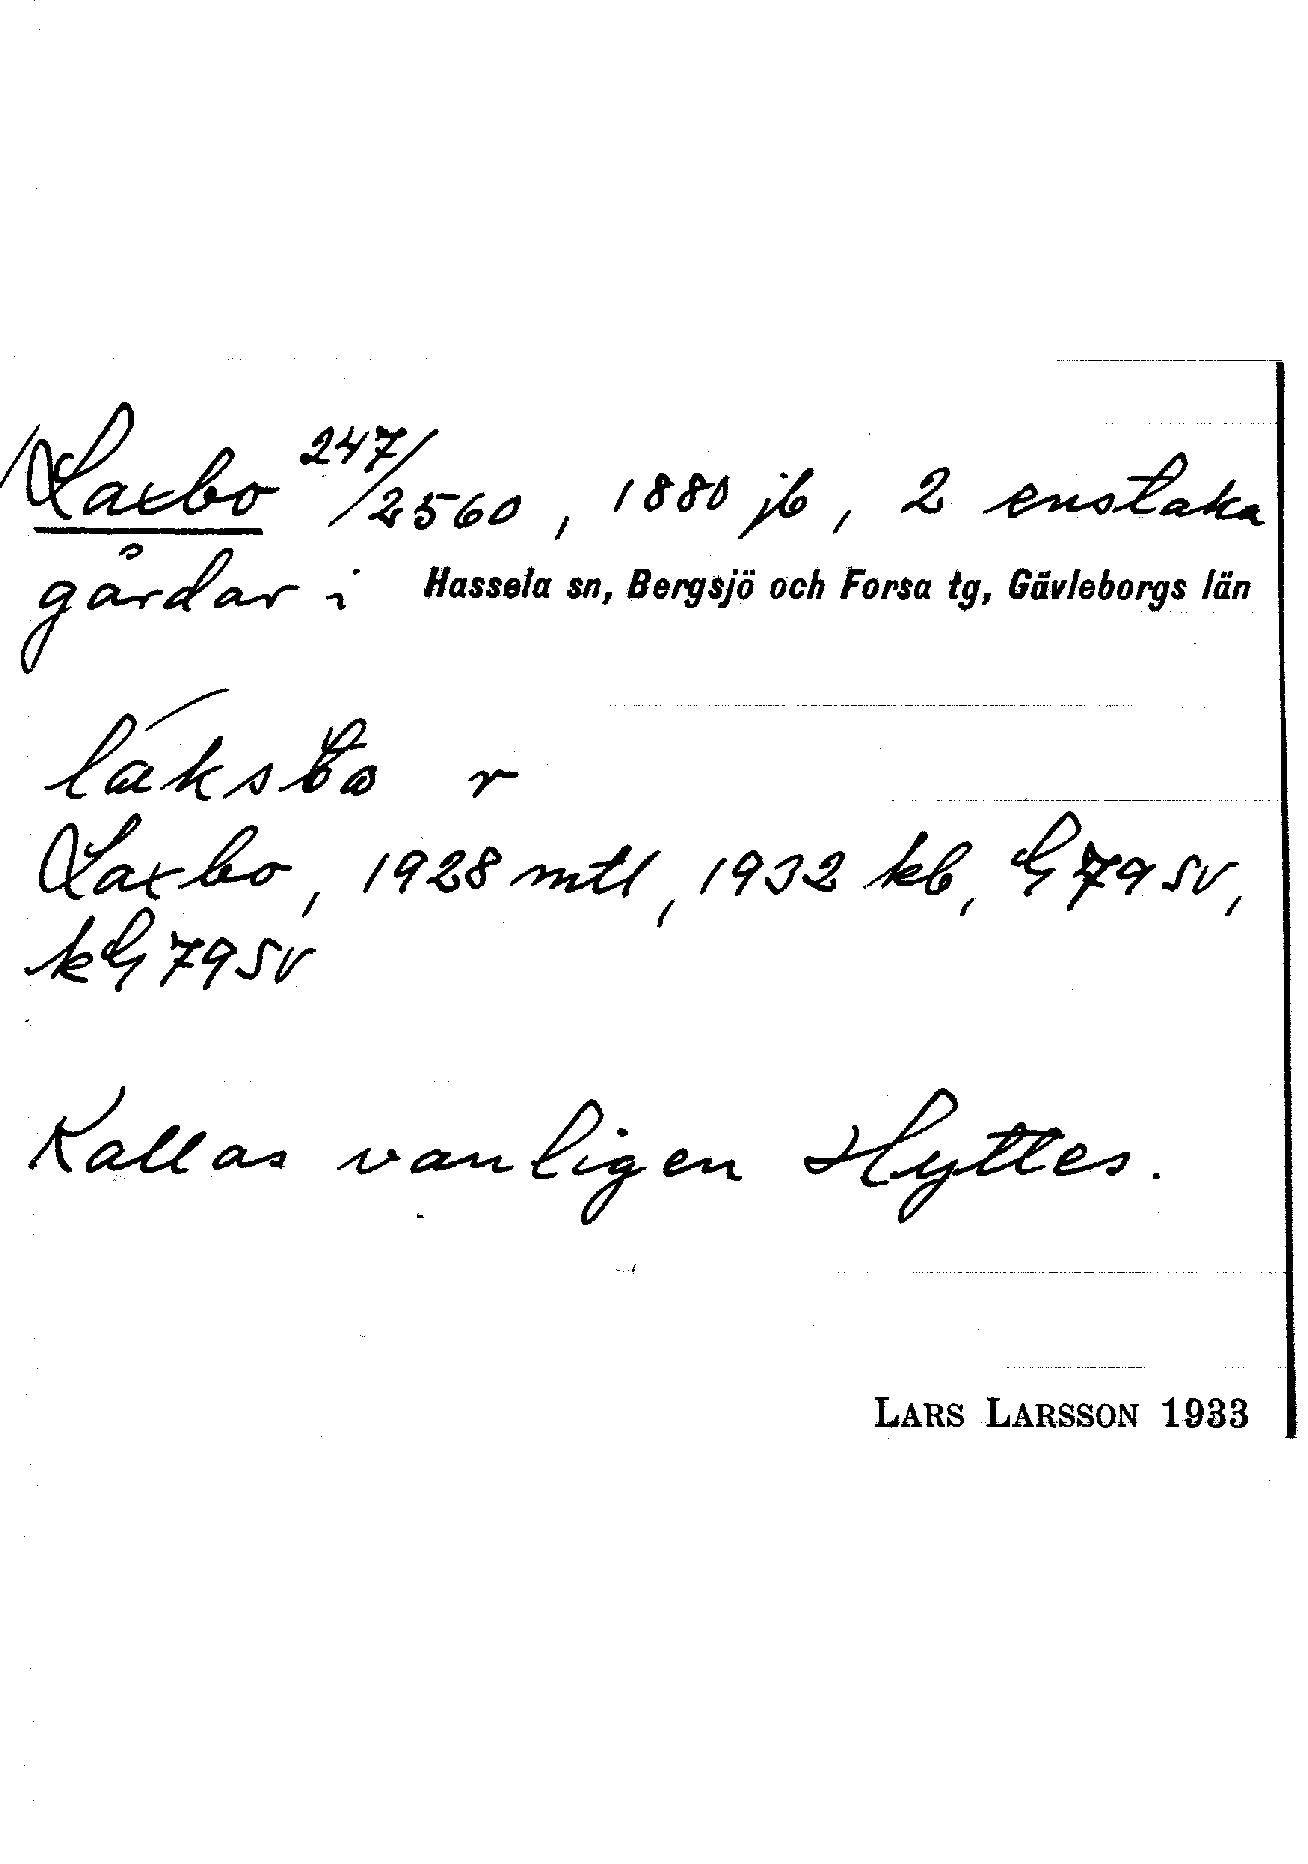 Laxbo 247/2560, 1880 jb, 2 enstaka
gårdar i Hassela sn, Bergsjö och Forsa tg, Gävleborgs län
láksbo r
Laxbo, 1928 mtl, 1932 kb, G 79 SV,
kG 79 SV
Kallas vanligen Hyttes.
LARS LARSSON 1933